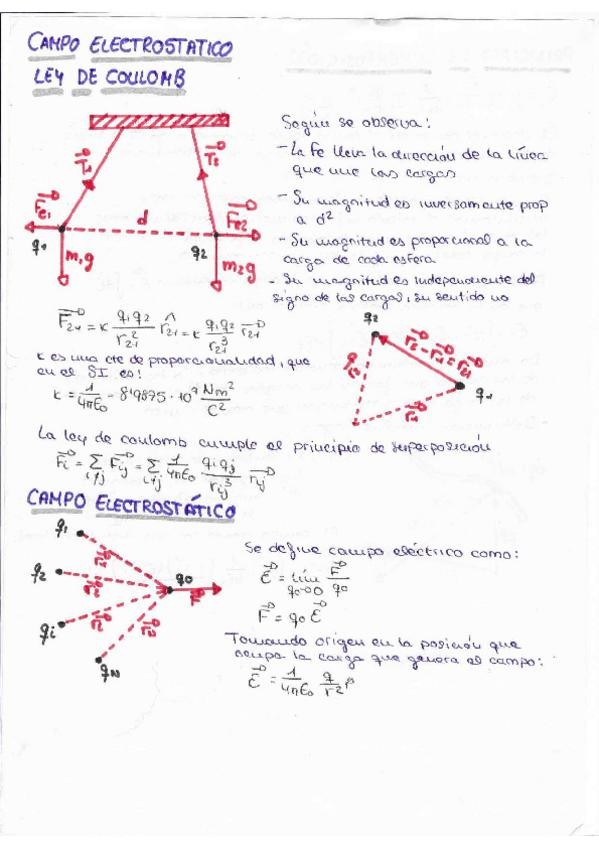 CAMPO ELECTROSTATICO
LEY DE COULOMB
Según se observa:
- La Fe lleva la dirección de la línea
que une las cargas
- Su magnitud es inversamente prop
a d²
- Su magnitud es proporcional a la
carga de cada esfera
- Su magnitud es independiente del
signo de las cargas, su sentido no
T₂
Fe₁
d
Fe₂
q₁
q₂
m₁g
m₂g
F₂₁ = K q₁q₂/r₂₁² r̂₂₁ = K q₁q₂/r₂₁³ r₂₁
K es una cte de proporcionalidad, que
en el SI es:
K = 1/4πε₀ - 8'9875 · 10⁹ Nm²/C²
q₂
r₂ - r₁ = r₂₁
q₁
r₁
La ley de coulomb cumple el principio de superposición
Fi = Σ i≠j Fij = Σ i≠j 1/4πε₀ qiqj/rij³ rij
CAMPO ELECTROSTÁTICO
q₁
q₂
qi
qN
q₀
F
Se define campo eléctrico como:
E = lím q₀→0 F/q₀
F = q₀ E
Tomando origen en la posición que
ocupa la carga que genera el campo:
E = 1/4πε₀ q/r² r̂